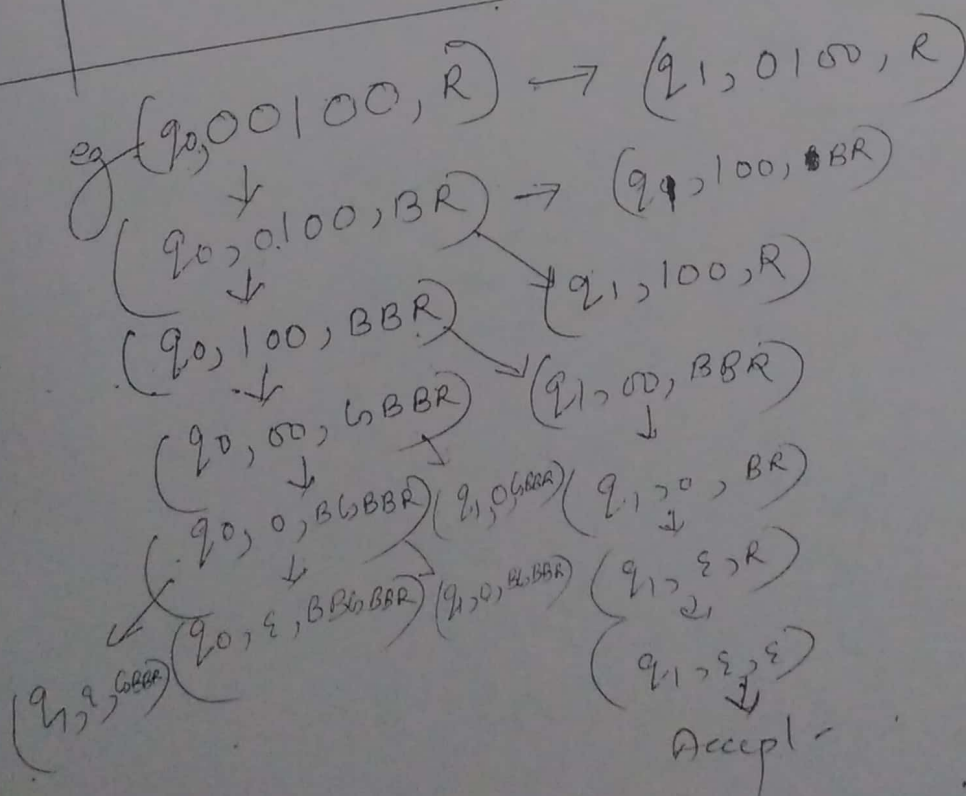 eg (q0, 00100, R) → (q1, 0100, R)
↓
(q0, 0100, BR) → (q1, 100, BR)
↓ (q1, 100, R)
(q0, 100, BBR)
↓ (q1, 00, BBR)
(q0, 00, GBBR) ↓
↓ (q1, 0, GBBR) (q1, 0, BR)
(q0, 0, BGBBR) ↓
↓ (q1, 0, BGBBR) (q1, ε, R)
(q0, ε, BBGBBR) ↓
(q1, ε, GBBR) (q1, ε, ε)
↓
Accept